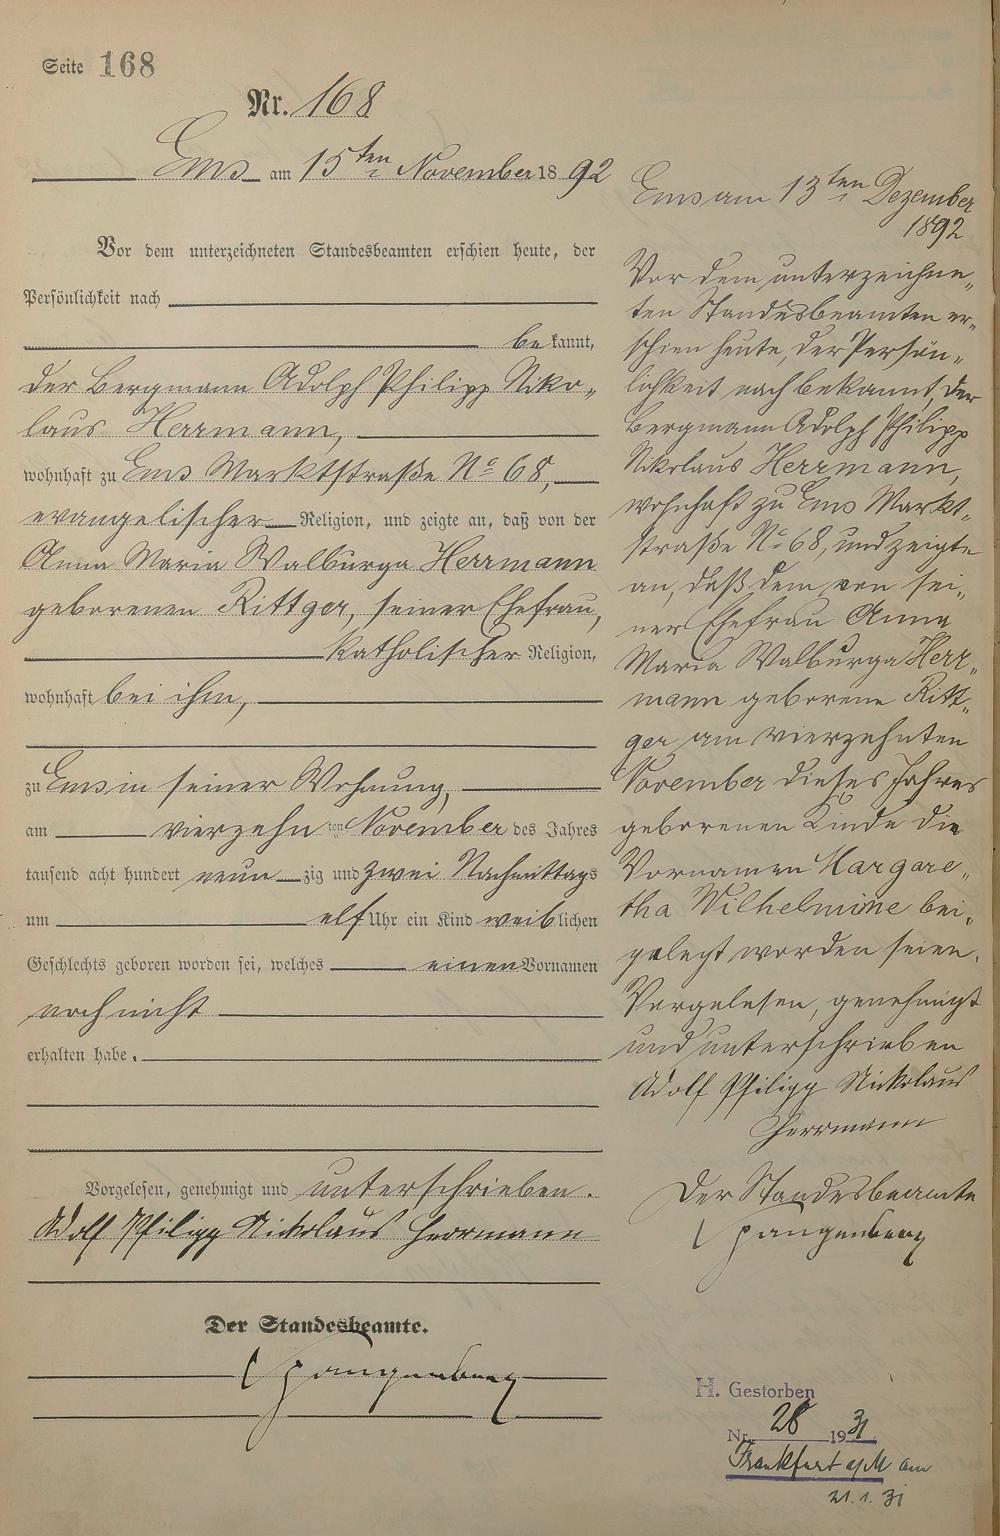 Seite 168
Nr. 168
Ems am 15ten November 1892
Vor dem unterzeichneten Standesbeamten erschien heute, der
Persönlichkeit nach
bekannt,
der Bergmann Adolph Philipp Niko-
laus Herrmann,
wohnhaft zu Ems Marktstraße No 68,
evangelischer Religion, und zeigte an, daß von der
Anna Maria Walburga Herrmann
geborenen Rittger, seiner Ehefrau,
katholischer Religion,
wohnhaft bei ihm,
zu Ems in seiner Wohnung,
am vierzehn ten November des Jahres
tausend acht hundert neun zig und zwei Nachmittags
um elf Uhr ein Kind weiblichen
Geschlechts geboren worden sei, welches einen Vornamen
noch nicht
erhalten habe.
Vorgelesen, genehmigt und unterschrieben.
Adolf Philipp Nickolaus Herrmann
Der Standesbeamte.
Spangenberg
Ems am 13ten Dezember
1892
Vor dem unterzeichne-
ten Standesbeamten er-
schien heute, der Persön-
lichkeit nach bekannt, der
Bergmann Adolph Philipp
Nikolaus Herrmann,
wohnhaft zu Ems Markt-
straße No 68, und zeigte
an, daß dem von sei-
ner Ehefrau Anna
Maria Walburga Herr-
mann geborene Ritt-
ger am vierzehnten
November dieses Jahres
geborenen Kinde die
Vornamen Margare-
tha Wilhelmine bei-
gelegt worden seien.
Vorgelesen, genehmigt
und unterschrieben
Adolf Philipp Nickolaus
Herrmann
Der Standesbeamte
Spangenberg
H. Gestorben
Nr. 28 1931
Frankfurt a/M am
21.1.31